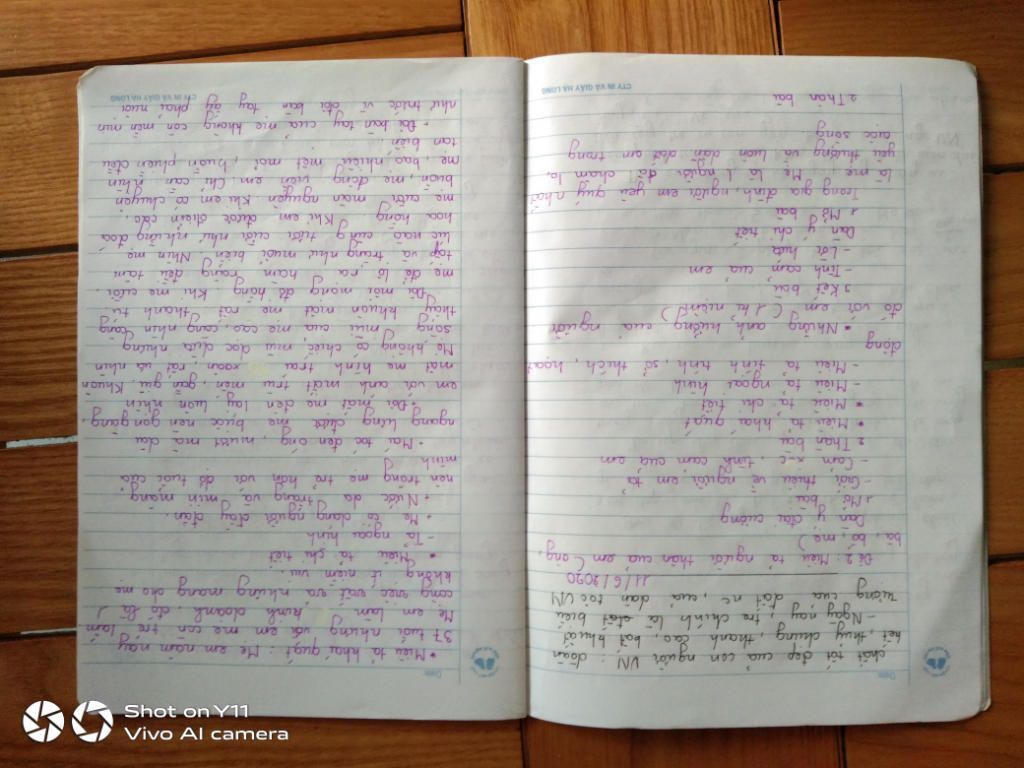 Date:
chất tốt đẹp của con người VN : đoàn
kết, thủy chung, thanh cao, bất khuất
- Ngày nay tre chính là biểu
tượng của đất nc, của dân tộc VN
11/6/2020
Đề 2: Miêu tả người thân của em (ông,
bà, bố, mẹ)
Dàn ý đại cương
1 Mở bài
- Giới thiệu về người em tả
- Cảm x-c, tình cảm của em
2 Thân bài
* Miêu tả khái quát
* Miêu tả chi tiết
- Miêu tả ngoại hình
- Miêu tả tính tình, sở thích, hoạt
động
* Những ảnh hưởng của người
đó với em (1 kỉ niệm)
3 Kết bài
- Tình cảm của em
- Lời hứa
Dàn ý chi tiết
1 Mở bài
Trong gia đình, người em yêu quý nhất
là mẹ em. Mẹ là 1 người đã chăm lo,
yêu thương và luôn dẫn dắt em trong
cuộc sống
2 Thân bài
CTY IN VÀ GIẤY HẠ LONG
Date:
* Miêu tả khái quát: Mẹ em năm nay
37 tuổi nhưng với em mẹ còn trẻ lắm
Mẹ em làm kinh doanh, đó là 1
công việc vất vả nhưng mang cho mẹ
không ít niềm vui
* Miêu tả chi tiết
- Tả ngoại hình
+ Mẹ có dáng người đầy đặn.
+ Nước da trắng và mịn màng
nên trông mẹ trẻ hơn với độ tuổi của
mình
+ Mái tóc đen óng, mượt mà dài
ngang lưng được mẹ buộc nên gọn gàng.
Đôi mắt mẹ đen láy luôn nhìn
em với ánh mắt trìu mến, gần gũi. Khuôn
mặt mẹ hình trái xoan rất ưa nhìn
Mẹ không có chiếc mũi dọc dừa nhưng
sống mũi của mẹ cao, càng nhìn càng
thấy khuôn mặt mẹ rất thanh tú
Đôi môi mỏng đỏ hồng. Khi mẹ cười,
mẹ để lộ ra hàm răng đều tăm
tắp và trắng như muối biển. Nhìn mẹ
lúc nào cũng tươi cười như những đóa
hoa hồng. Khi em được điểm cao,
mẹ cười mãn nguyện. Khi em có chuyện
buồn, mẹ động viên em. Chỉ cần nhìn
mẹ, bao nhiêu mệt mỏi, buồn phiền đều
tan biến
- Đôi bàn tay của mẹ không còn mềm mịn
như trước vì đôi bàn tay ấy phải nuôi
CTY IN VÀ GIẤY HẠ LONG
Shot on Y11
Vivo AI camera